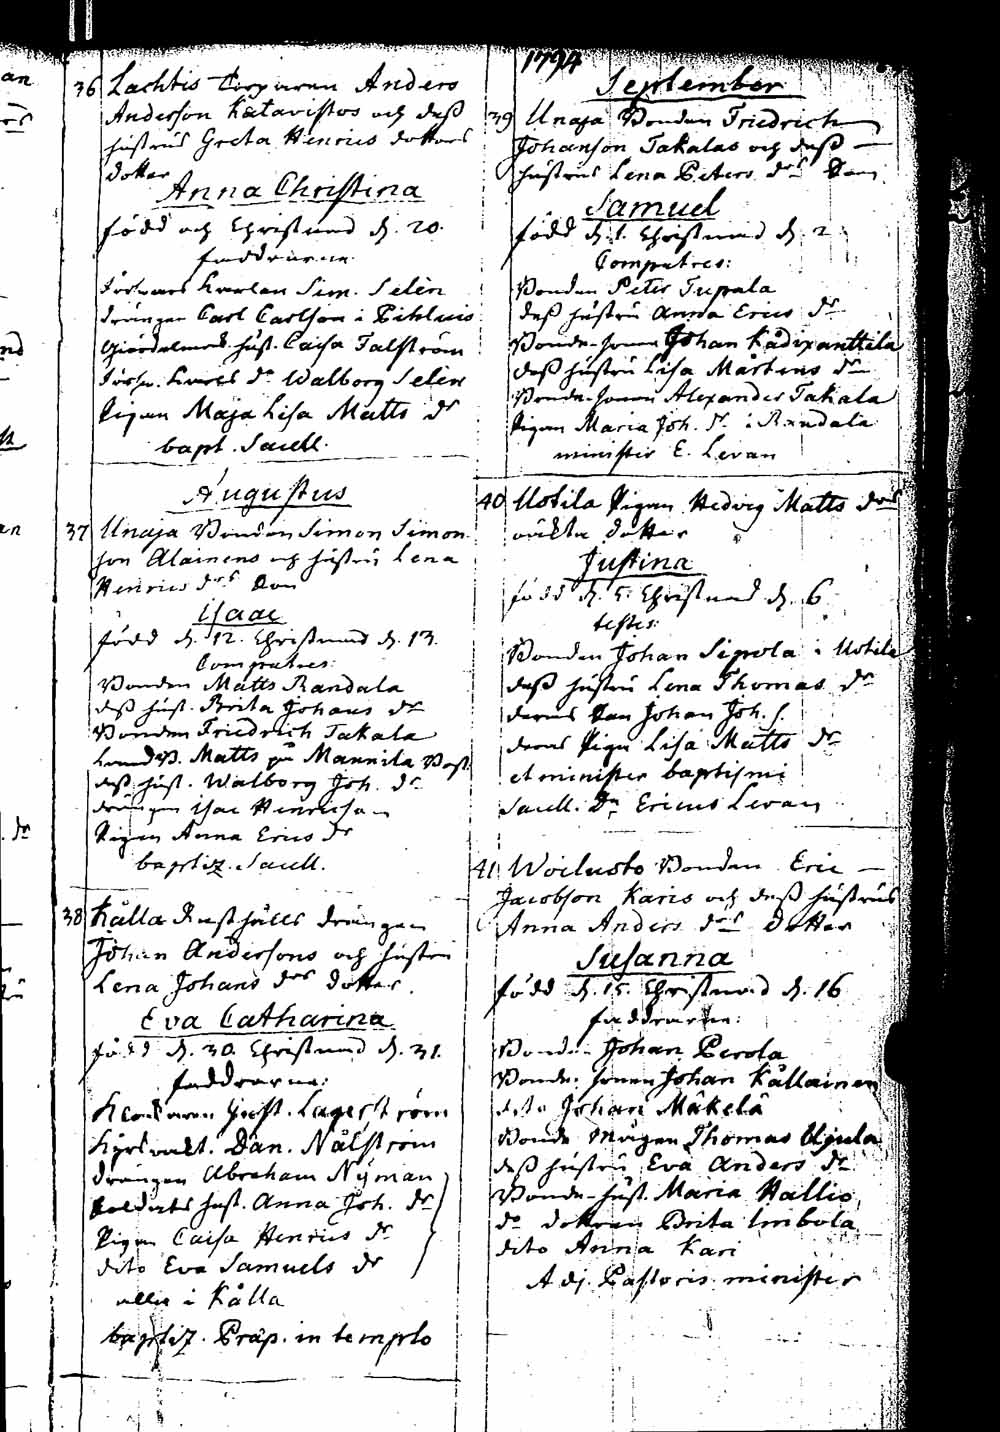 1794
36 Lachtis Torparen Anders
Anderson Katavistos och dess
hustrus Greta Henrics dotters
dotter
Anna Christina
född och Christnad d. 20.
faddrarne
Selén
drängen Carl Carlson i Pihlus
hust. Caisa Talström
dr Walborg Selén
Pigan Maja Lisa Matts dr
bapt. Sacell.
Augustus
37 Unaja Bonden Simon Simon
son Alainens och hustru Lena
Henrics drs Son
Isaac
född d. 12. Christnad d. 13.
Compatres:
Bonden Matts Randala
dess hust. Brita Johans dr
Bonden Friedrich Takala
Matts på Mannila
dess hust. Walborg Joh. dr
drängen Isac Henricson
Pigan Anna Erics dr
baptiz. Sacell.
38 Kålla Rusthålls drängen
Johan Andersons och hustru
Lena Johans drs dotter.
Eva Catharina
född d. 30. Christnad d. 31.
faddrarne:
Gust. Lagerström
Dan. Nålström
drängen Abraham Nÿman
Soldats hust. Anna Joh. dr
Pigan Caisa Henrics dr
dito Eva Samuels dr
alla i Kålla
baptiz. Präp. in templo
September
39 Unaja Bonden Friedrich
Johanson Takalas och dess
hustrus Lena Peters drs Son
Samuel
född d. 1. Christnad d. 2
Compatres:
Bonden Peter Tupala
dess hustru Anna Erics dr
Bonde-sonen Johan Kådixanttila
dess hustru Lisa Mårtens dr
Bonde-sonen Alexander Takala
Pigan Maria Joh. dr i Randala
minister E. Levan
40 Uotila Pigan Hedvig Matts drs
oäkta dotter
Justina
född d. 5. Christnad d. 6
testes:
Bonden Johan Sipola i Uotila
dess hustru Lena Thomas dr
deras Son Johan Joh. s.
deras Piga Lisa Matts dr
et minister baptismi
Sacell. Dn Ericus Levan
41 Woiluoto Bonden Eric
Jacobson Karis och dess hustrus
Anna Anders drs dotter
Susanna
född d. 15. Christnad d. 16
faddrarne:
Bonden Johan Perola
Bonde-sonen Johan Kållainen
dito Johan Mäkelä
Bonde mågen Thomas Ujula
dess hustru Eva Anders dr
Bonde-hust. Maria Hallio
do dottren Brita Imbola
dito Anna Kari
Adj. Pastoris minister